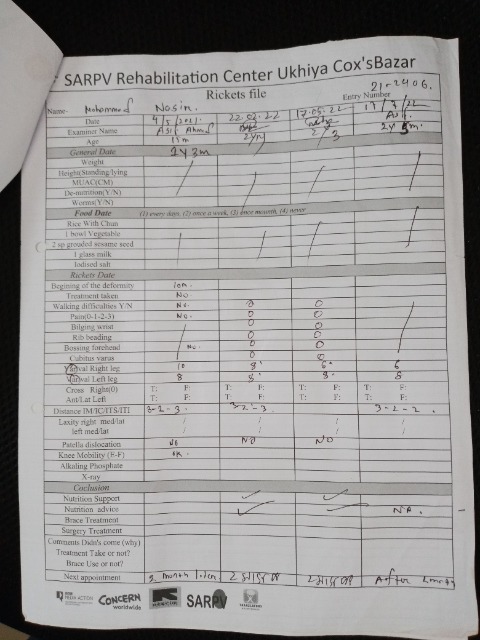 SARPV Rehabilitation Center Ukhiya Cox'sBazar
Rickets file
21-2906.
Entry Number
Name- Mohammed Nosin.
Date 4/5/2021. 22.02.22 17.05.22 17/7/22
Examiner Name Asif Ahmed Asif.
Age 2y 3 2y 5m.
General Date 1y 3m
Weight
Height(Standing/lying
MUAC(CM)
De-nutrition(Y/N)
Worms(Y/N)
Food Date (1) every days, (2) once a week, (3) once mounth, (4) never
Rice With Chun
1 bowl Vegetable
2 sp grouded sesame seed
1 glass milk
Iodised salt
Rickets Date
Begining of the deformity 10m.
Treatment taken NO.
Walking difficulties Y/N No. 0 0
Pain(0-1-2-3) NO. 0 0
Bilging wrist 0 0
Rib beading 0 0
Bossing forehead No. 0 0
Cubitus varus 0 0
Right leg 10 8 6 6
Left leg 8 8 8 8
Cross Right(0) T: F: T: F: T: F: T: F:
Ant/Lat Left T: F: T: F: T: F: T: F:
Distance IM/IC/ITS/ITI 3-2-3. 3-2-3 3-2-2.
Laxity right med/lat / / /
left med/lat / / /
Patella dislocation NO NO NO
Knee Mobility (E-F) OK.
Alkaling Phosphate
X-ray
Coclusion
Nutrition Support ✓ ✓
Nutrition advice ✓ ✓ NA.
Brace Treatment
Surgery Treatment
Comments Didn's come (why)
Treatment Take or not?
Brace Use or not?
Next appointment 3 month later. After 2 month
CONCERN worldwide
SARPV